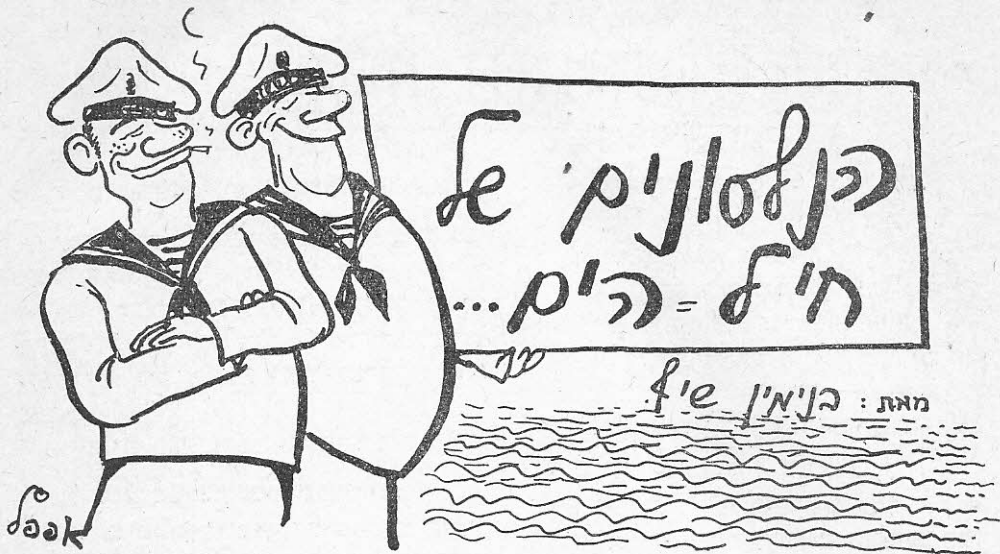 הנלסונים של
חיל-הים...
מאת: בנימין שיף.
אפפל